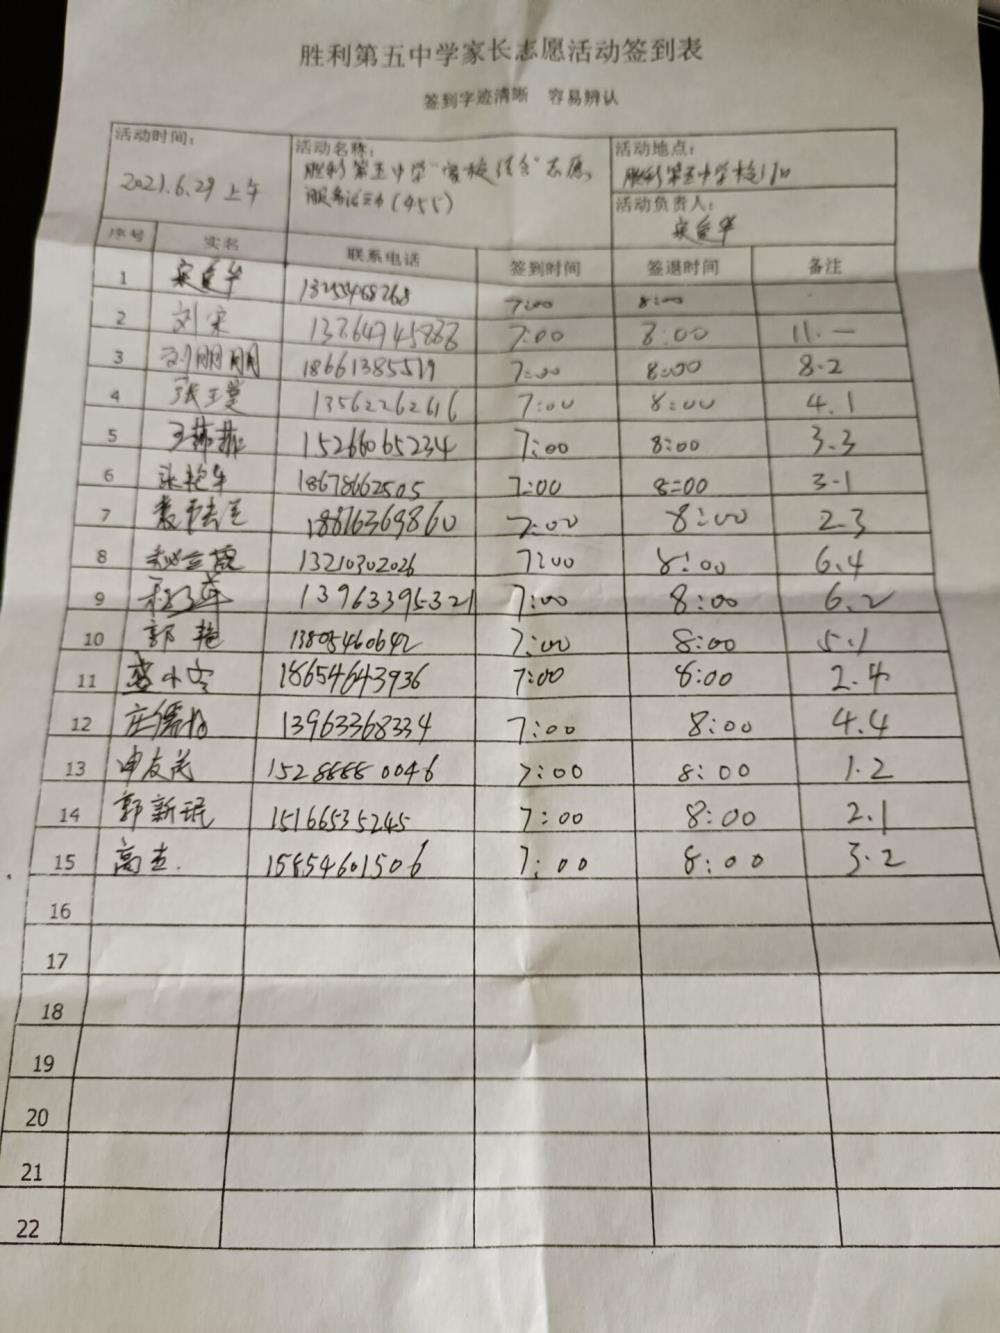 胜利第五中学家长志愿活动签到表
签到字迹清晰 容易辨认
活动时间： 活动名称： 活动地点：
2021.6.29上午 胜利第五中学"家校结合"志愿 胜利第五中学校门口
服务活动(455) 活动负责人：
序号 实名 联系电话 签到时间 签退时间 备注
1 13255468268 7:00 8:00
2 刘宋 13864945888 7:00 8:00 11.一
3 刘朋朋 18661385519 7:00 8:00 8.2
4 张玉堂 13562262616 7:00 8:00 4.1
5 15266065234 7:00 8:00 3.3
6 张艳华 18678662505 7:00 8:00 3.1
7 18816369860 7:00 8:00 2.3
8 13210302026 7:00 8:00 6.4
9 13963395321 7:00 8:00 6.2
10 郭艳 13805460642 7:00 8:00 5.1
11 18654643936 7:00 8:00 2.4
12 13963368334 7:00 8:00 4.4
13 15288880046 7:00 8:00 1.2
14 郭新珉 15166535245 7:00 8:00 2.1
15 高杰. 15854601506 7:00 8:00 3.2
16
17
18
19
20
21
22